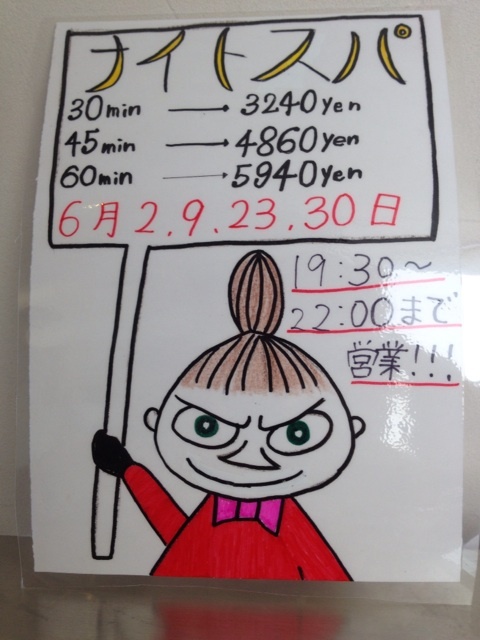 ナイトスパ
30min → 3240yen
45min → 4860yen
60min → 5940yen
6月2.9.23.30日
19:30～
22:00まで
営業!!!